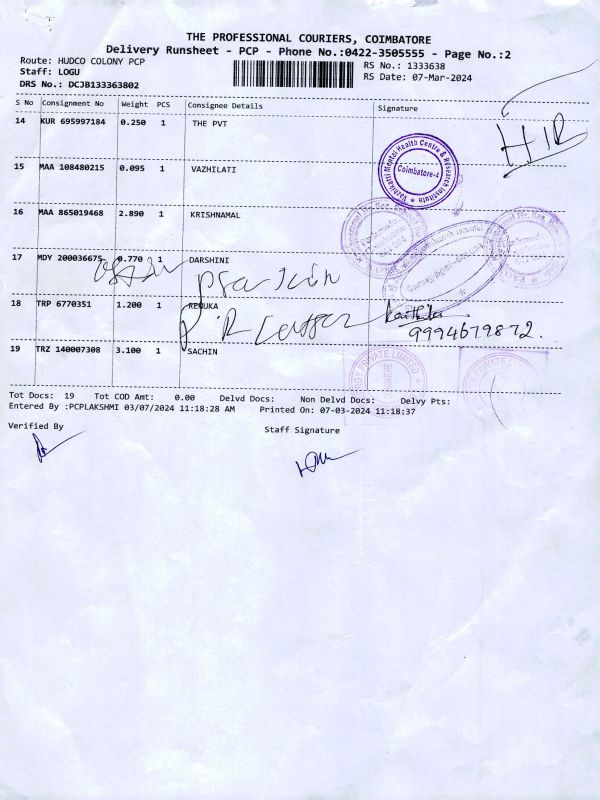 THE PROFESSIONAL COURIERS, COIMBATORE
Delivery Runsheet - PCP - Phone No.:0422-3505555 - Page No.:2
Route: HUDCO COLONY PCP
RS No.: 1333638
Staff: LOGU
RS Date: 07-Mar-2024
DRS No.: DCJB133363802
S No Consignment No Weight PCS Consignee Details Signature
14 KUR 695997184 0.250 1 THE PVT
HIR
15 MAA 108480215 0.095 1 VAZHILATI
Vazhikatti Mental Health Centre & Research Institute
Coimbatore-4
16 MAA 865019468 2.890 1 KRISHNAMAL
17 MDY 200036675 0.770 1 DARSHINI
18 TRP 6770351 1.200 1 RENUKA
9994679872.
19 TRZ 140007308 3.100 1 SACHIN
PRIVATE LIMITED
Tot Docs: 19 Tot COD Amt: 0.00 Delvd Docs: Non Delvd Docs: Delvy Pts:
Entered By :PCPLAKSHMI 03/07/2024 11:18:28 AM Printed On: 07-03-2024 11:18:37
Verified By
Staff Signature